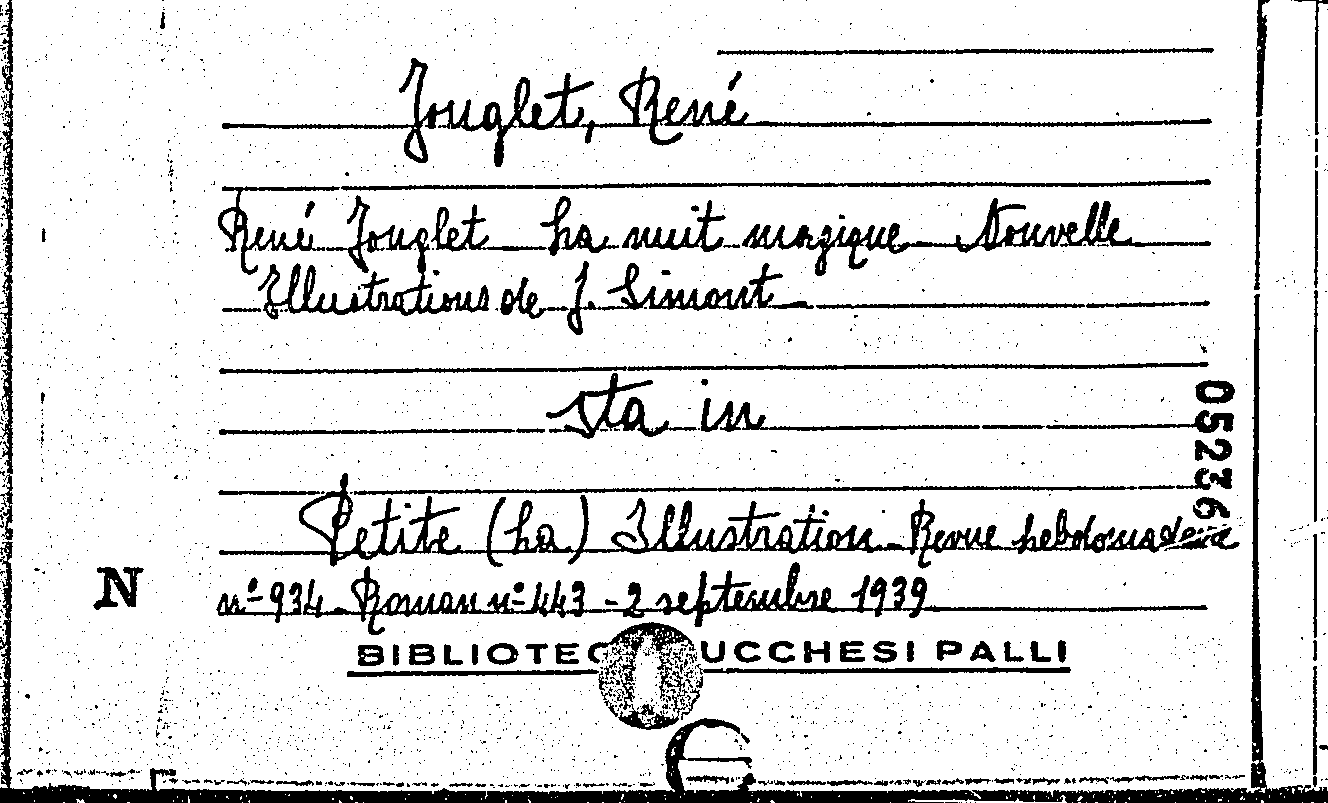 Jouglet, René
René Jouglet La nuit magique Nouvelle
Illustrations de J. Simont
sta in
Petite (La) Illustration - Revue hebdomadaire
nº 934 - Roman nº 443 - 2 septembre 1939
N
BIBLIOTEC UCCHESI PALLI
05236